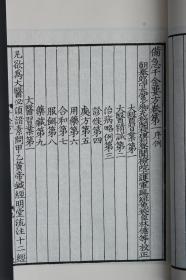 備急千金要方卷第一 序例
朝奉郎守太常少卿充祕閣校理判登聞檢院上護軍賜緋魚袋臣林億等校正
大醫習業第一
大醫精誠第二
治病略例第三
診候第四
處方第五
用藥第六
合和第七
服餌第八
藥藏第九
大醫習業第一
凡欲為大醫必須諳素問甲乙黃帝鍼經明堂流注十二經